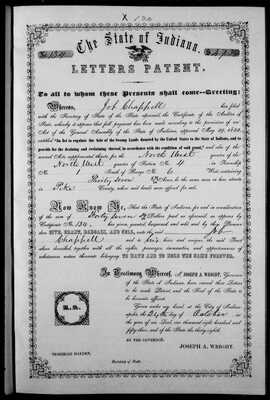 X 130
The State of Indiana.
LETTERS PATENT.
To all to whom these Presents shall come—Greeting:
Whereas, Job Chappell has filed
with the Secretary of State of the State aforesaid the Certificate of the Auditor of
State, whereby it appears that full payment has been made according to the provisions of an
Act of the General Assembly of the State of Indiana, approved May 29, 1852,
entitled "An Act to regulate the Sale of the Swamp Lands donated by the United States to the State of Indiana, and to
provide for the draining and reclaiming thereof, in accordance with the condition of said grant," and also of the
several Acts supplemental thereto for the North West quarter of
North West quarter of Section No. 4 in Township
No. 1 of Range No. 6 West containing
acres more or less situate in
Pike County, where said lands were offered for sale.
Now Know Ye, That the State of Indiana, for and in consideration
of the sum of Dollars paid as aforesaid, as appears by
Certificate No. 134, has given granted bargained and sold and by these Presents
does GIVE, GRANT, BARGAIN, AND SELL, unto the said Job
Chappell and to his heirs and assigns the said Tract
above described together with all the rights, privileges immunities and appurtenances of
whatsoever nature thereunto belonging TO HAVE AND TO HOLD THE SAME FOREVER.
In Testimony Whereof, I, JOSEPH A. WRIGHT, Governor
of the State of Indiana, have caused these Letters
to be made Patent, and the Seal of the State to
be hereunto affixed.
Given under my hand, at the City of Indianapolis,
the 24th day of October in
the year of our Lord, one thousand eight hundred and
fifty-three, and of the State the thirty-eighth.
BY THE GOVERNOR,
JOSEPH A. WRIGHT.
NEHEMIAH HAYDEN,
Secretary of State.